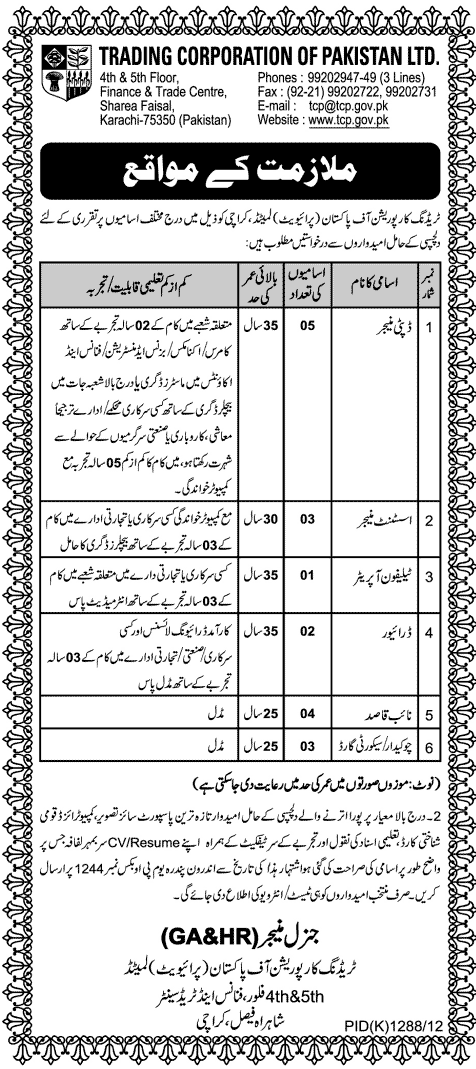 TRADING CORPORATION OF PAKISTAN LTD.
4th & 5th Floor,
Finance & Trade Centre,
Sharea Faisal,
Karachi-75350 (Pakistan)
Phones : 99202947-49 (3 Lines)
Fax : (92-21) 99202722, 99202731
E-mail : tcp@tcp.gov.pk
Website : www.tcp.gov.pk
ملازمت کے مواقع
ٹریڈنگ کارپوریشن آف پاکستان (پرائیویٹ) لمیٹڈ، کراچی کو ذیل میں درج مختلف اسامیوں پر تقرری کے لئے
دلچسپی کے حامل امیدواروں سے درخواستیں مطلوب ہیں:
نمبر شمار | اسامی کا نام | اسامیوں کی تعداد | بالائی عمر کی حد | کم از کم تعلیمی قابلیت/تجربہ
1 | ڈپٹی منیجر | 05 | 35 سال | متعلقہ شعبے میں کام کے 02 سالہ تجربے کے ساتھ
کامرس/اکنامکس/بزنس ایڈمنسٹریشن/فنانس اینڈ
اکاؤنٹس میں ماسٹرز ڈگری یا درج بالا شعبہ جات میں
بیچلر ڈگری کے ساتھ کسی سرکاری محکمے/ادارے ترجیحاً
معاشی، کاروباری یا صنعتی سرگرمیوں کے حوالے سے
شہرت رکھتا ہو، میں کام کا کم از کم 05 سالہ تجربہ مع
کمپیوٹر خواندگی۔
2 | اسسٹنٹ منیجر | 03 | 30 سال | مع کمپیوٹر خواندگی کسی سرکاری یا تجارتی ادارے میں کام
کے 03 سالہ تجربے کے ساتھ بیچلرز ڈگری کا حامل
3 | ٹیلیفون آپریٹر | 01 | 35 سال | کسی سرکاری یا تجارتی دارے میں متعلقہ شعبے میں کام
کے 03 سالہ تجربے کے ساتھ انٹرمیڈیٹ پاس
4 | ڈرائیور | 02 | 35 سال | کارآمد ڈرائیونگ لائسنس اور کسی
سرکاری/صنعتی/تجارتی ادارے میں کام کے 03 سالہ
تجربے کے ساتھ مڈل پاس
5 | نائب قاصد | 04 | 25 سال | مڈل
6 | چوکیدار/سیکورٹی گارڈ | 03 | 25 سال | مڈل
(نوٹ: موزوں صورتوں میں عمر کی حد میں رعایت دی جاسکتی ہے)
2۔ درج بالا معیار پر پورا اترنے والے دلچسپی کے حامل امیدوار تازہ ترین پاسپورٹ سائز تصویر، کمپیوٹرائزڈ قومی
شناختی کارڈ، تعلیمی اسناد کی نقول اور تجربے کے سرٹیفکیٹ کے ہمراہ اپنے CV/Resume سربمہر لفافہ جس پر
واضح طور پر اسامی کی صراحت کی گئی ہو اشتہار ہذا کی تاریخ سے اندرون پندرہ یوم پی او بکس نمبر 1244 پر ارسال
کریں۔ صرف منتخب امیدواروں کو ہی ٹیسٹ/انٹرویو کی اطلاع دی جائے گی۔
جنرل منیجر (GA&HR)
ٹریڈنگ کارپوریشن آف پاکستان (پرائیویٹ) لمیٹڈ
4th&5th فلور، فنانس اینڈ ٹریڈ سینٹر
شاہراہ فیصل، کراچی
PID(K)1288/12